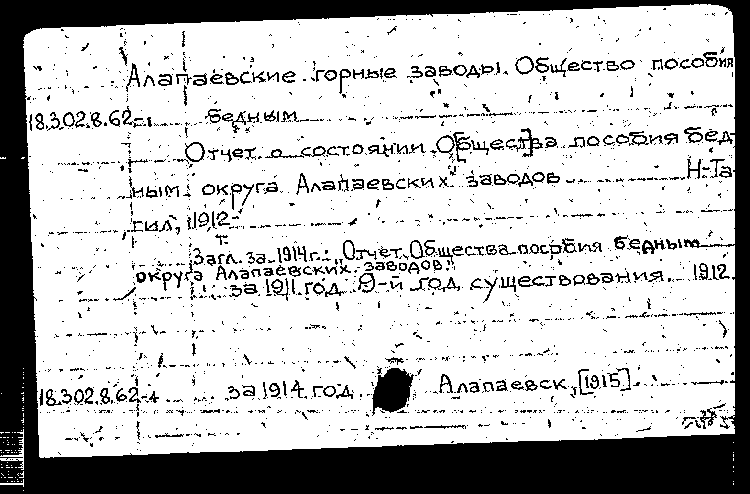 Алапаевские горные заводы. Общество пособия
18.302.8.62-1 бедным
Отчет о состоянии О[бщест]ва пособия бед-
ным округа Алапаевских заводов Н-Та-
гил, 1912-
т.
Загл. за 1914 г.: "Отчет Общества пособия бедным
округа Алапаевских заводов."
за 1911 год 9-й год существования. 1912.
18.302.8.62-4 за 1914 год Алапаевск, [1915].